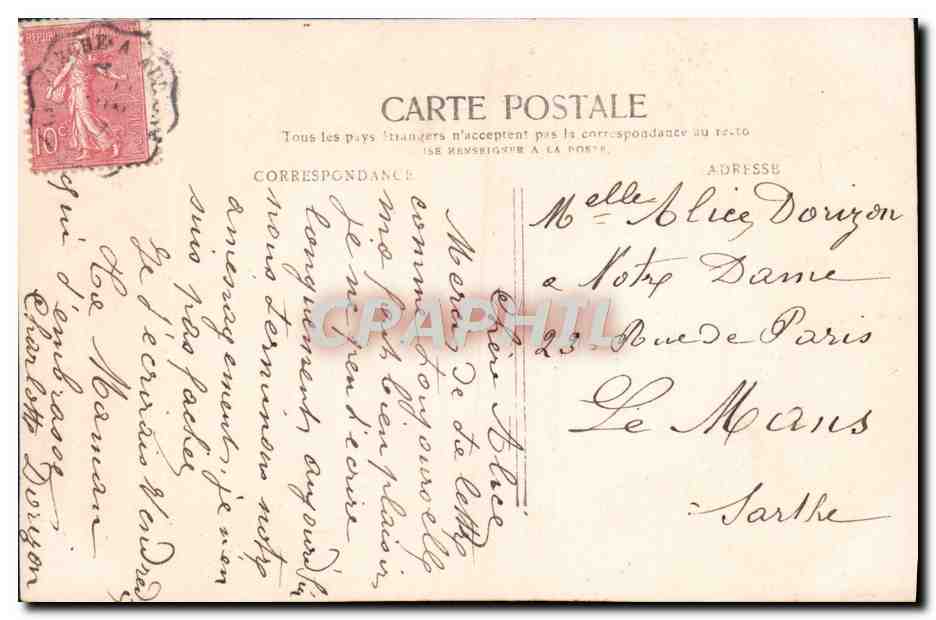 CARTE POSTALE
Tous les pays étrangers n'acceptent pas la correspondance au recto
(SE RENSEIGNER A LA POSTE)
CORRESPONDANCE
ADRESSE
Melle Alice Dorizon
a Notre Dame
23 Rue de Paris
Le Mans
Sarthe
Chère Alice
Merci de te lettre
comme toujours elle
ma fait bien plaisir
je ne prend écrire
longuement aujourd'hui
nous terminons notre
amenagement, je n'en
suis pas facher
Je t'écrirais Vendredi
Ta Maman
qui t'embrasse
Charlotte Dorizon
10c
CPAPHIL